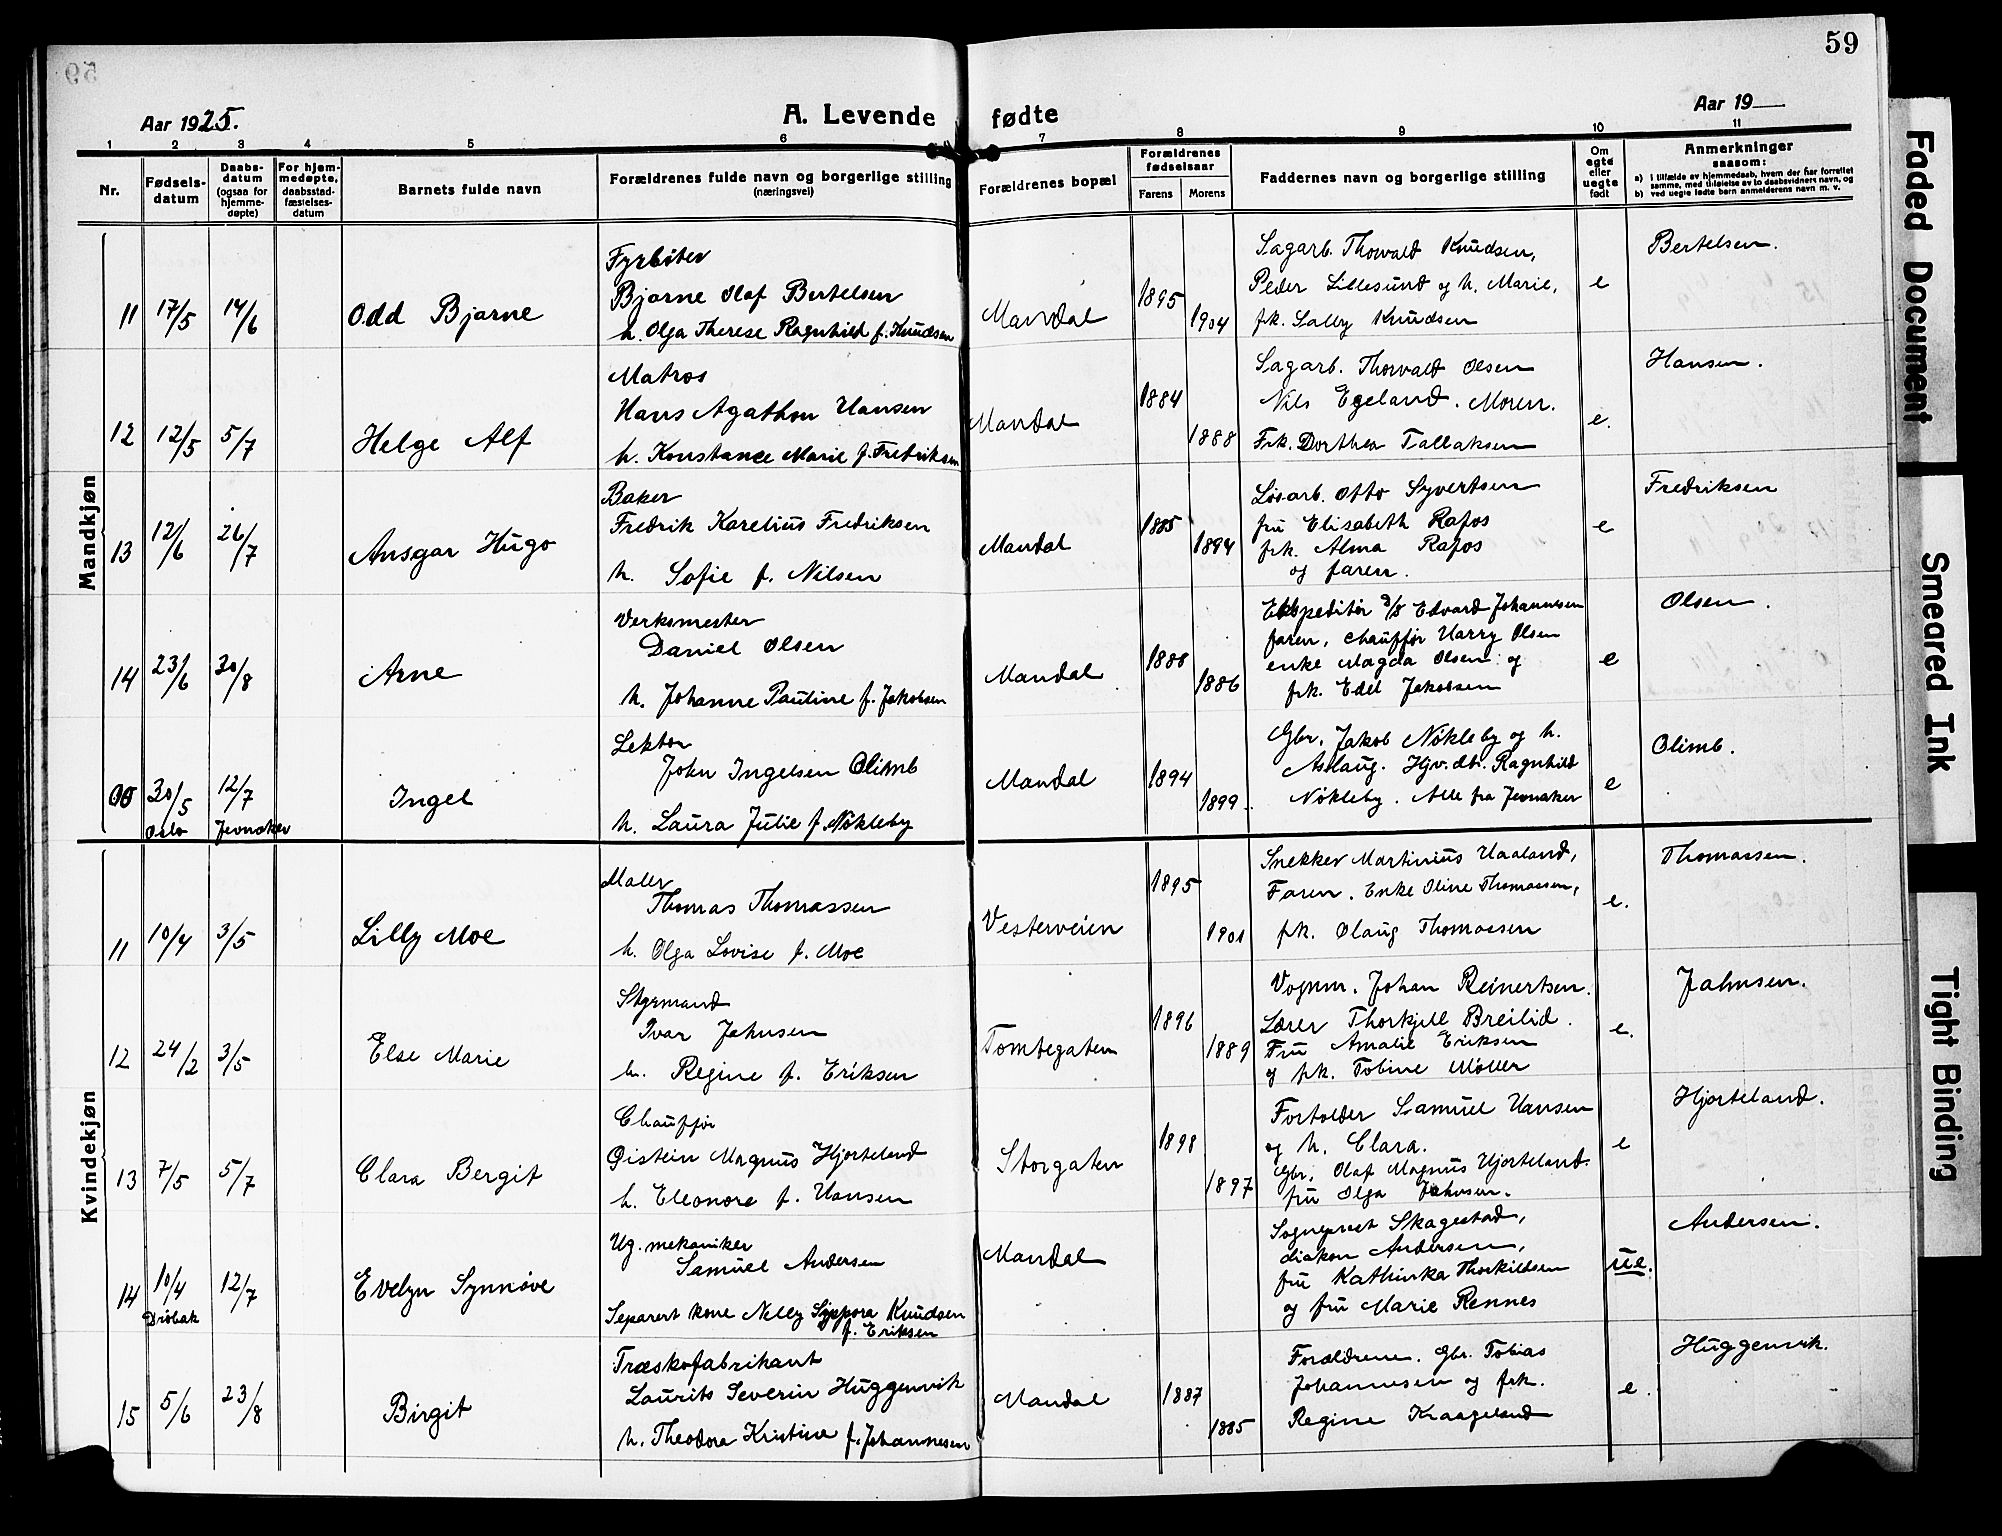 59
Aar 1925.
A. Levende fødte
Aar 19
1 2 3 4 5 6 7 8 9 10 11
Nr.
Fødsels-datum
Daabs-datum (ogsaa for hjemme-døpte)
For hjem-medøpte, daabsstad-fæstelses-datum
Barnets fulde navn
Forældrenes fulde navn og borgerlige stilling
(næringsvei)
Forældrenes bopæl
Forældrenes fødselsaar
Farens Morens
Faddernes navn og borgerlige stilling
Om egte eller uegte født
Anmerkninger
saasom:
a) i tilfælde av hjemmedaab, hvem der har forrettet samme, med tilføielse av to daabsvidners navn, og
b) ved uegte fødte børn anmelderens navn m. v.
Mandkjøn
11 17/5 14/6 Odd Bjarne
Fyrbøter
Bjarne Olaf Bertelsen
h. Olga Therese Ragnhild f. Knudsen
Mandal 1895 1904
Sagarb. Thorvald Knudsen,
Peder Lillesund og h. Marie,
frk. Sally Knudsen
e Bertelsen.
12 12/5 5/7 Helge Alf
Matros
Hans Agathon Hansen
h. Konstance Marie f. Fredriksen
Mandal 1884 1888
Sagarb. Thorvald Olsen
Nils Egeland. Moren.
Frk. Dorthea Tallaksen
e. Hansen.
13 12/6 26/7 Ansgar Hugo
Baker
Fredrik Karelius Fredriksen
h. Sofie f. Nilsen
Mandal 1885 1894
Løsarb. Otto Syvertsen
fru Elisabeth Rafos
frk. Alma Rafos
og faren.
e Fredriksen
14 23/6 30/8 Arne
Verksmester
Daniel Olsen
h. Johanne Pauline f. Jakobsen
Mandal 1888 1886
Ekspeditør d/s Edvard Johannesen
faren, chauffør Harry Olsen
enke Magda Olsen og
frk. Edel Jakobsen
e Olsen.
30/5 12/7 Ingel
Oslo Jevnaker
Lektor
John Ingelsen Olimb
h. Laura Julie f. Nøkleby
Mandal 1894 1899.
Gbr. Jakob Nøkleby og h.
Aslaug. Hjv. dtr. Ragnhild
Nøkleby. Alle fra Jevnaker
e Olimb.
Kvindekjøn
11 10/4 3/5 Lilly Moe
Maler
Thomas Thomassen
h. Olga Lovise f. Moe
Vesterveien 1895 1901
Snekker Martinius Haaland,
Faren. Enke Oline Thomassen,
frk. Olaug Thomassen
e. Thomassen.
12 24/2 3/5 Else Marie
Styrmand
Ivar Jahnsen
h. Regine f. Eriksen
Tomtegaten 1896 1889
Vognm. Johan Reinertsen.
Lærer Thorkjell Breilid.
Fru Amalie Eriksen
og frk. Tobine Møller
e. Jahnsen.
13 7/5 5/7 Clara Bergit
Chauffør
Øistein Magnus Hjorteland
h. Eleonora f. Hansen
Storgaten 1898 1897
Forholder Samuel Hansen
og h. Clara.
Gbr. Olaf Magnus Hjorteland.
fru Olga Jahnsen.
e Hjorteland.
14 10/4 12/7 Evelyn Synnøve
Drøbak
Ug. mekaniker
Samuel Andersen
Separert kone Nelly Syppora Knudsen
f. Eriksen
Mandal
Sogneprest Skagestad,
diakon Andersen,
fru Kathinka Thorkildsen
og fru Marie Rennes
ue. Andersen.
15 5/6 23/8 Birgit
Træskofabrikant
Laurits Severin Huggenvik
h. Theodora Kristine f. Johannesen
Mandal 1887 1885
Forældrene. Gbr. Tobias
Johannesen og frk.
Regine Kraageland
e. Huggenvik.
Faded Document
Smeared Ink
Tight Binding